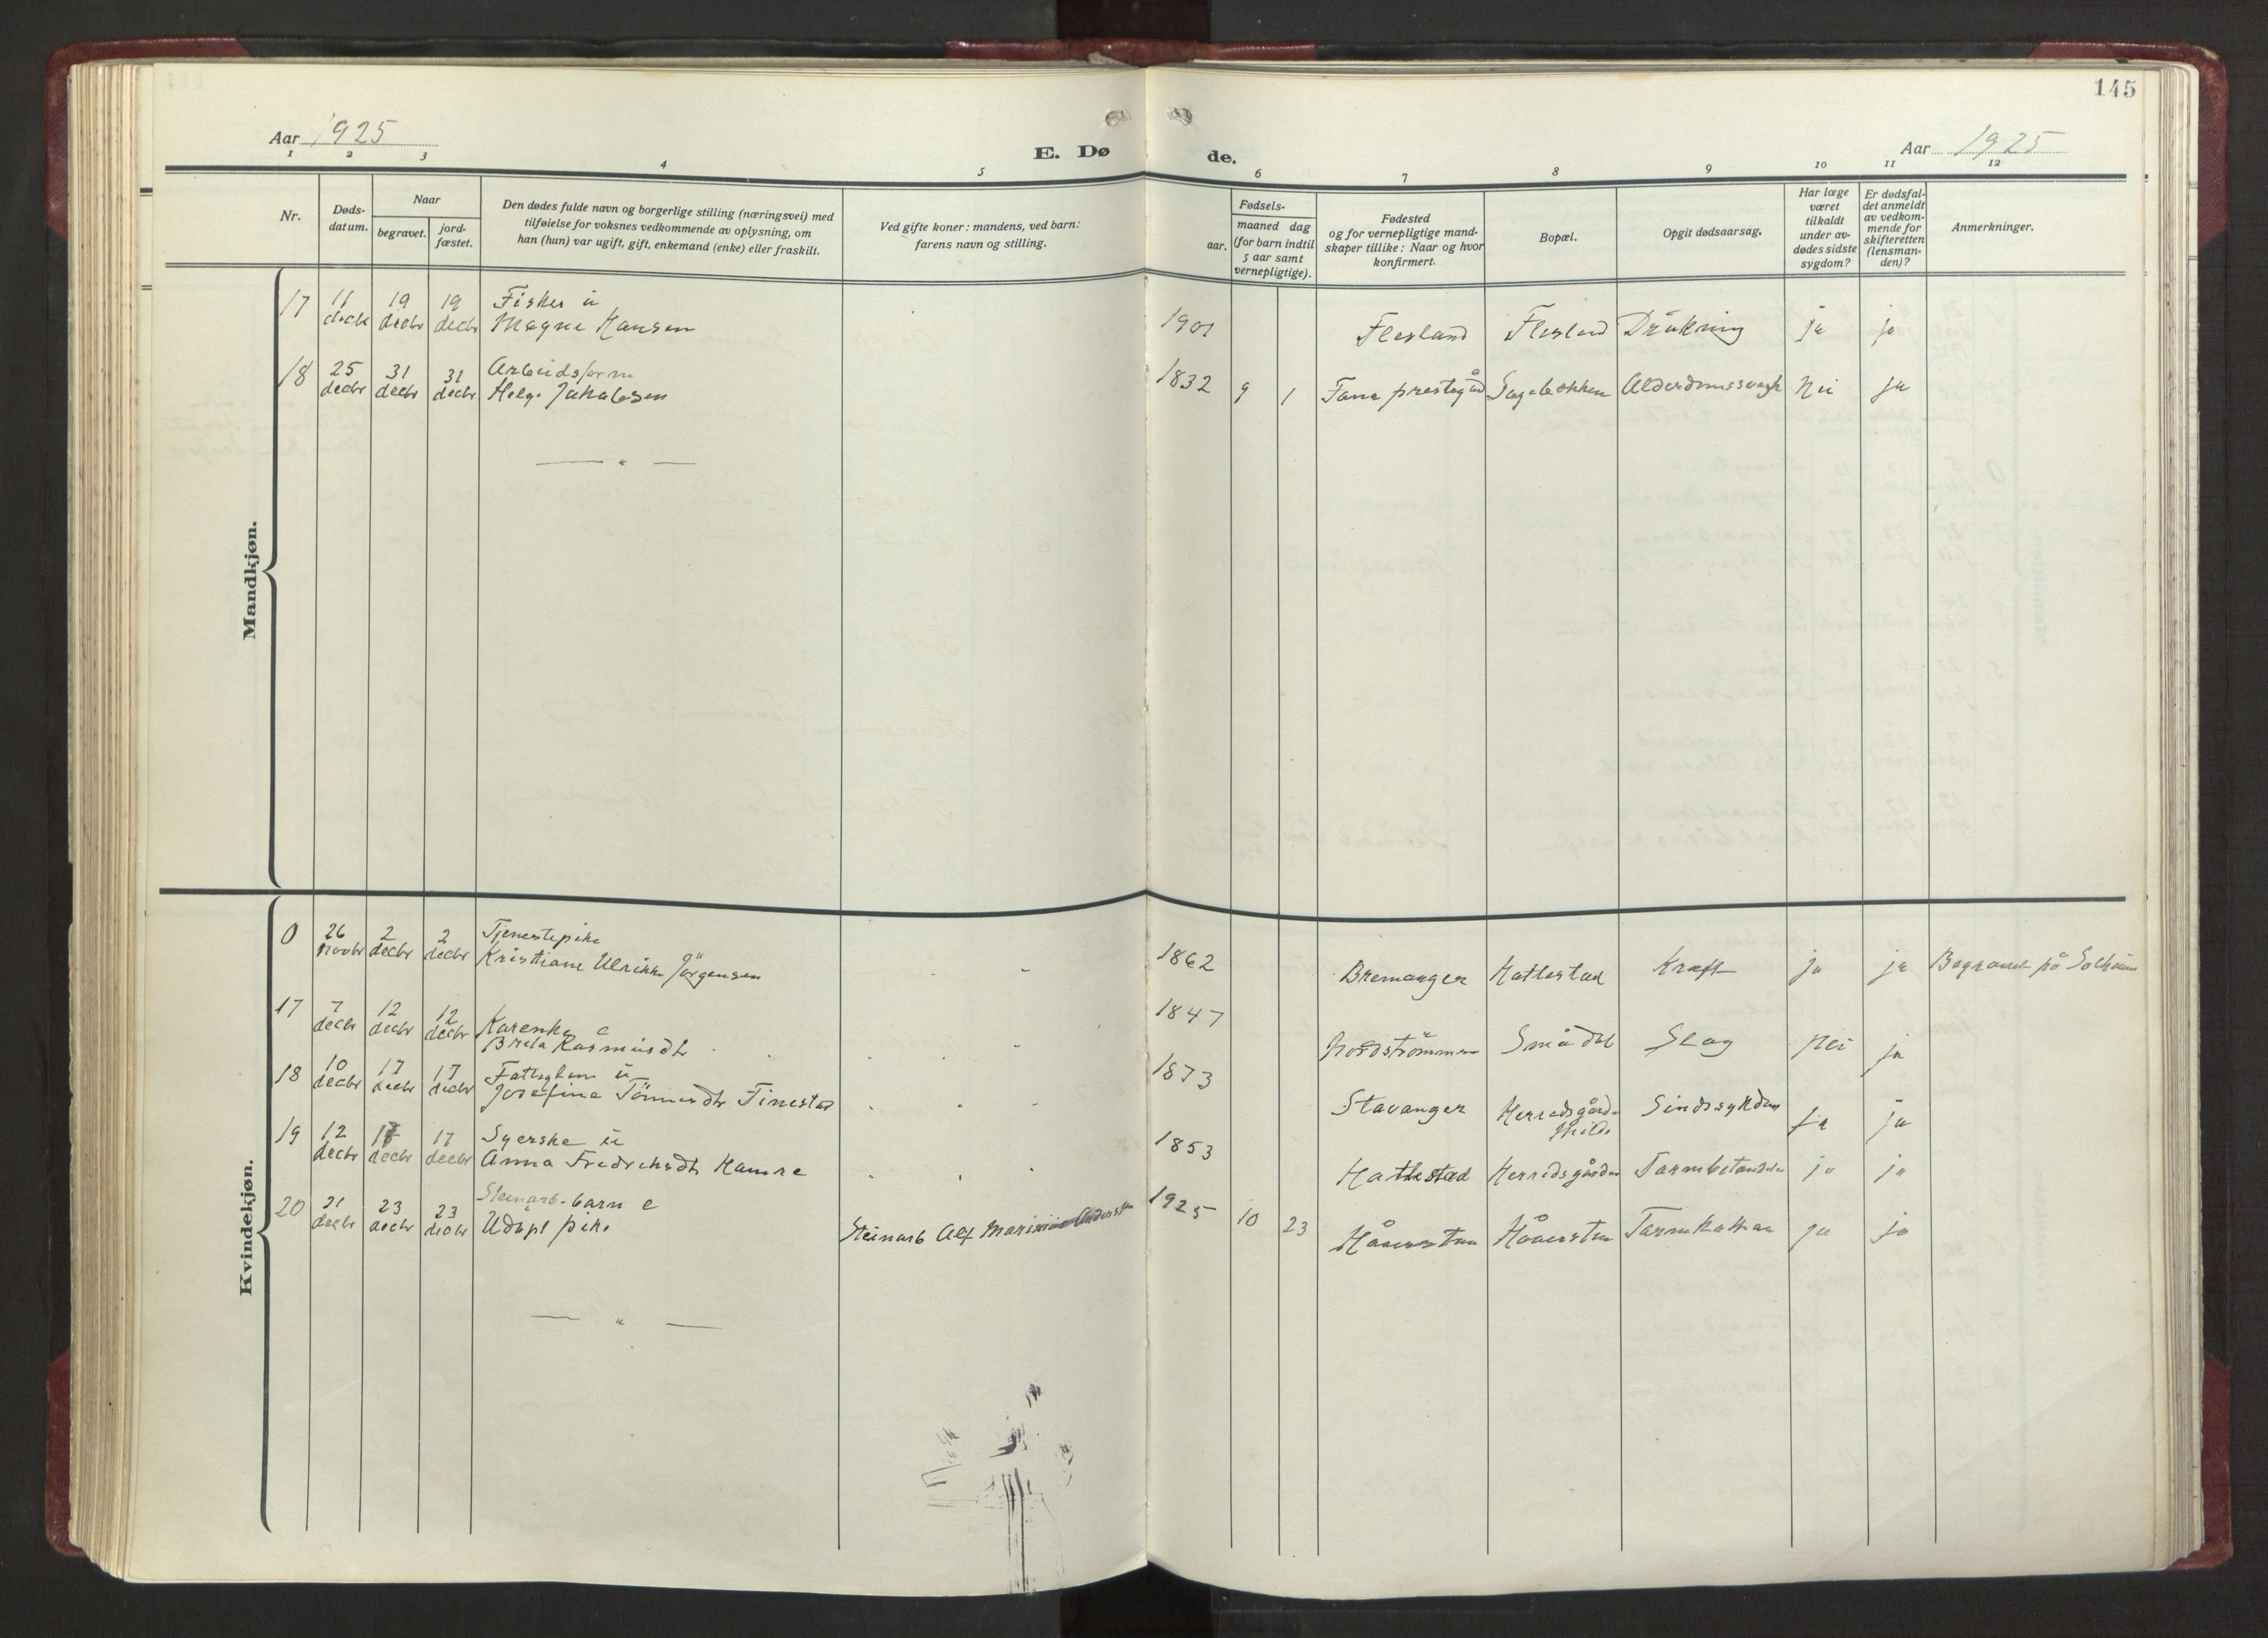 145
Aar 1925
E. Dø de.
Aar 1925
1 2 3 4 5 6 7 8 9 10 11 12
Nr.
Døds-
datum.
Naar
begravet.
jord-
fæstet.
Den dødes fulde navn og borgerlige stilling (næringsvei) med
tilføielse for voksnes vedkommende av oplysning, om
han (hun) var ugift, gift, enkemand (enke) eller fraskilt.
Ved gifte koner: mandens, ved barn:
farens navn og stilling.
Fødsels-
aar.
maaned dag
(for barn indtil
5 aar samt
vernepligtige).
Fødested
og for vernepligtige mand-
skaper tillike: Naar og hvor
konfirmert.
Bopæl.
Opgit dødsaarsag.
Har læge
været
tilkaldt
under av-
dødes sidste
sygdom?
Er dødsfal-
det anmeldt
av vedkom-
mende for
skifteretten
(lensman-
den)?
Anmerkninger.
Mandkjøn.
17 11 19 19 Fisker u
decbr decbr decbr Magne Hansen 1901 Flesland Flesland Drukning ja ja
18 25 31 31 Arbeidsform
decbr decbr decbr Helge Jakobsen 1832 9 1 Fana prestegård Alderdomssvagh Nei ja
— " —
Kvindekjøn.
0 26 2 2 Tjenestepike
novbr decbr decbr Kristiane Ulrikke Jörgensen - 1862 Bremanger Hattestad Kræft ja ja Begravet på Solheim
17 7 12 12 Kårenke e
decbr decbr decbr Brita Rasmusdtr - 1847 Nordströmmen Smådal Slag Nei ja
18 10 17 17 Fattiglem u
decbr decbr decbr Josefine Tönnesdtr Finestad - 1873 Stavanger Herredsgården Sindssykdom ja ja
19 12 17 17 Syerske u
decbr decbr decbr Anna Fredriksdtr Hamre 1853 Hattestad Herredsgården Tarmbetændelse ja ja
20 21 23 23 Steinarb. barn e
decbr decbr decbr Udøpt pike Steinarb Alf Marinius Andersen 1925 10 23 Håversten Håversten Tarmkatharr ja ja
— " —